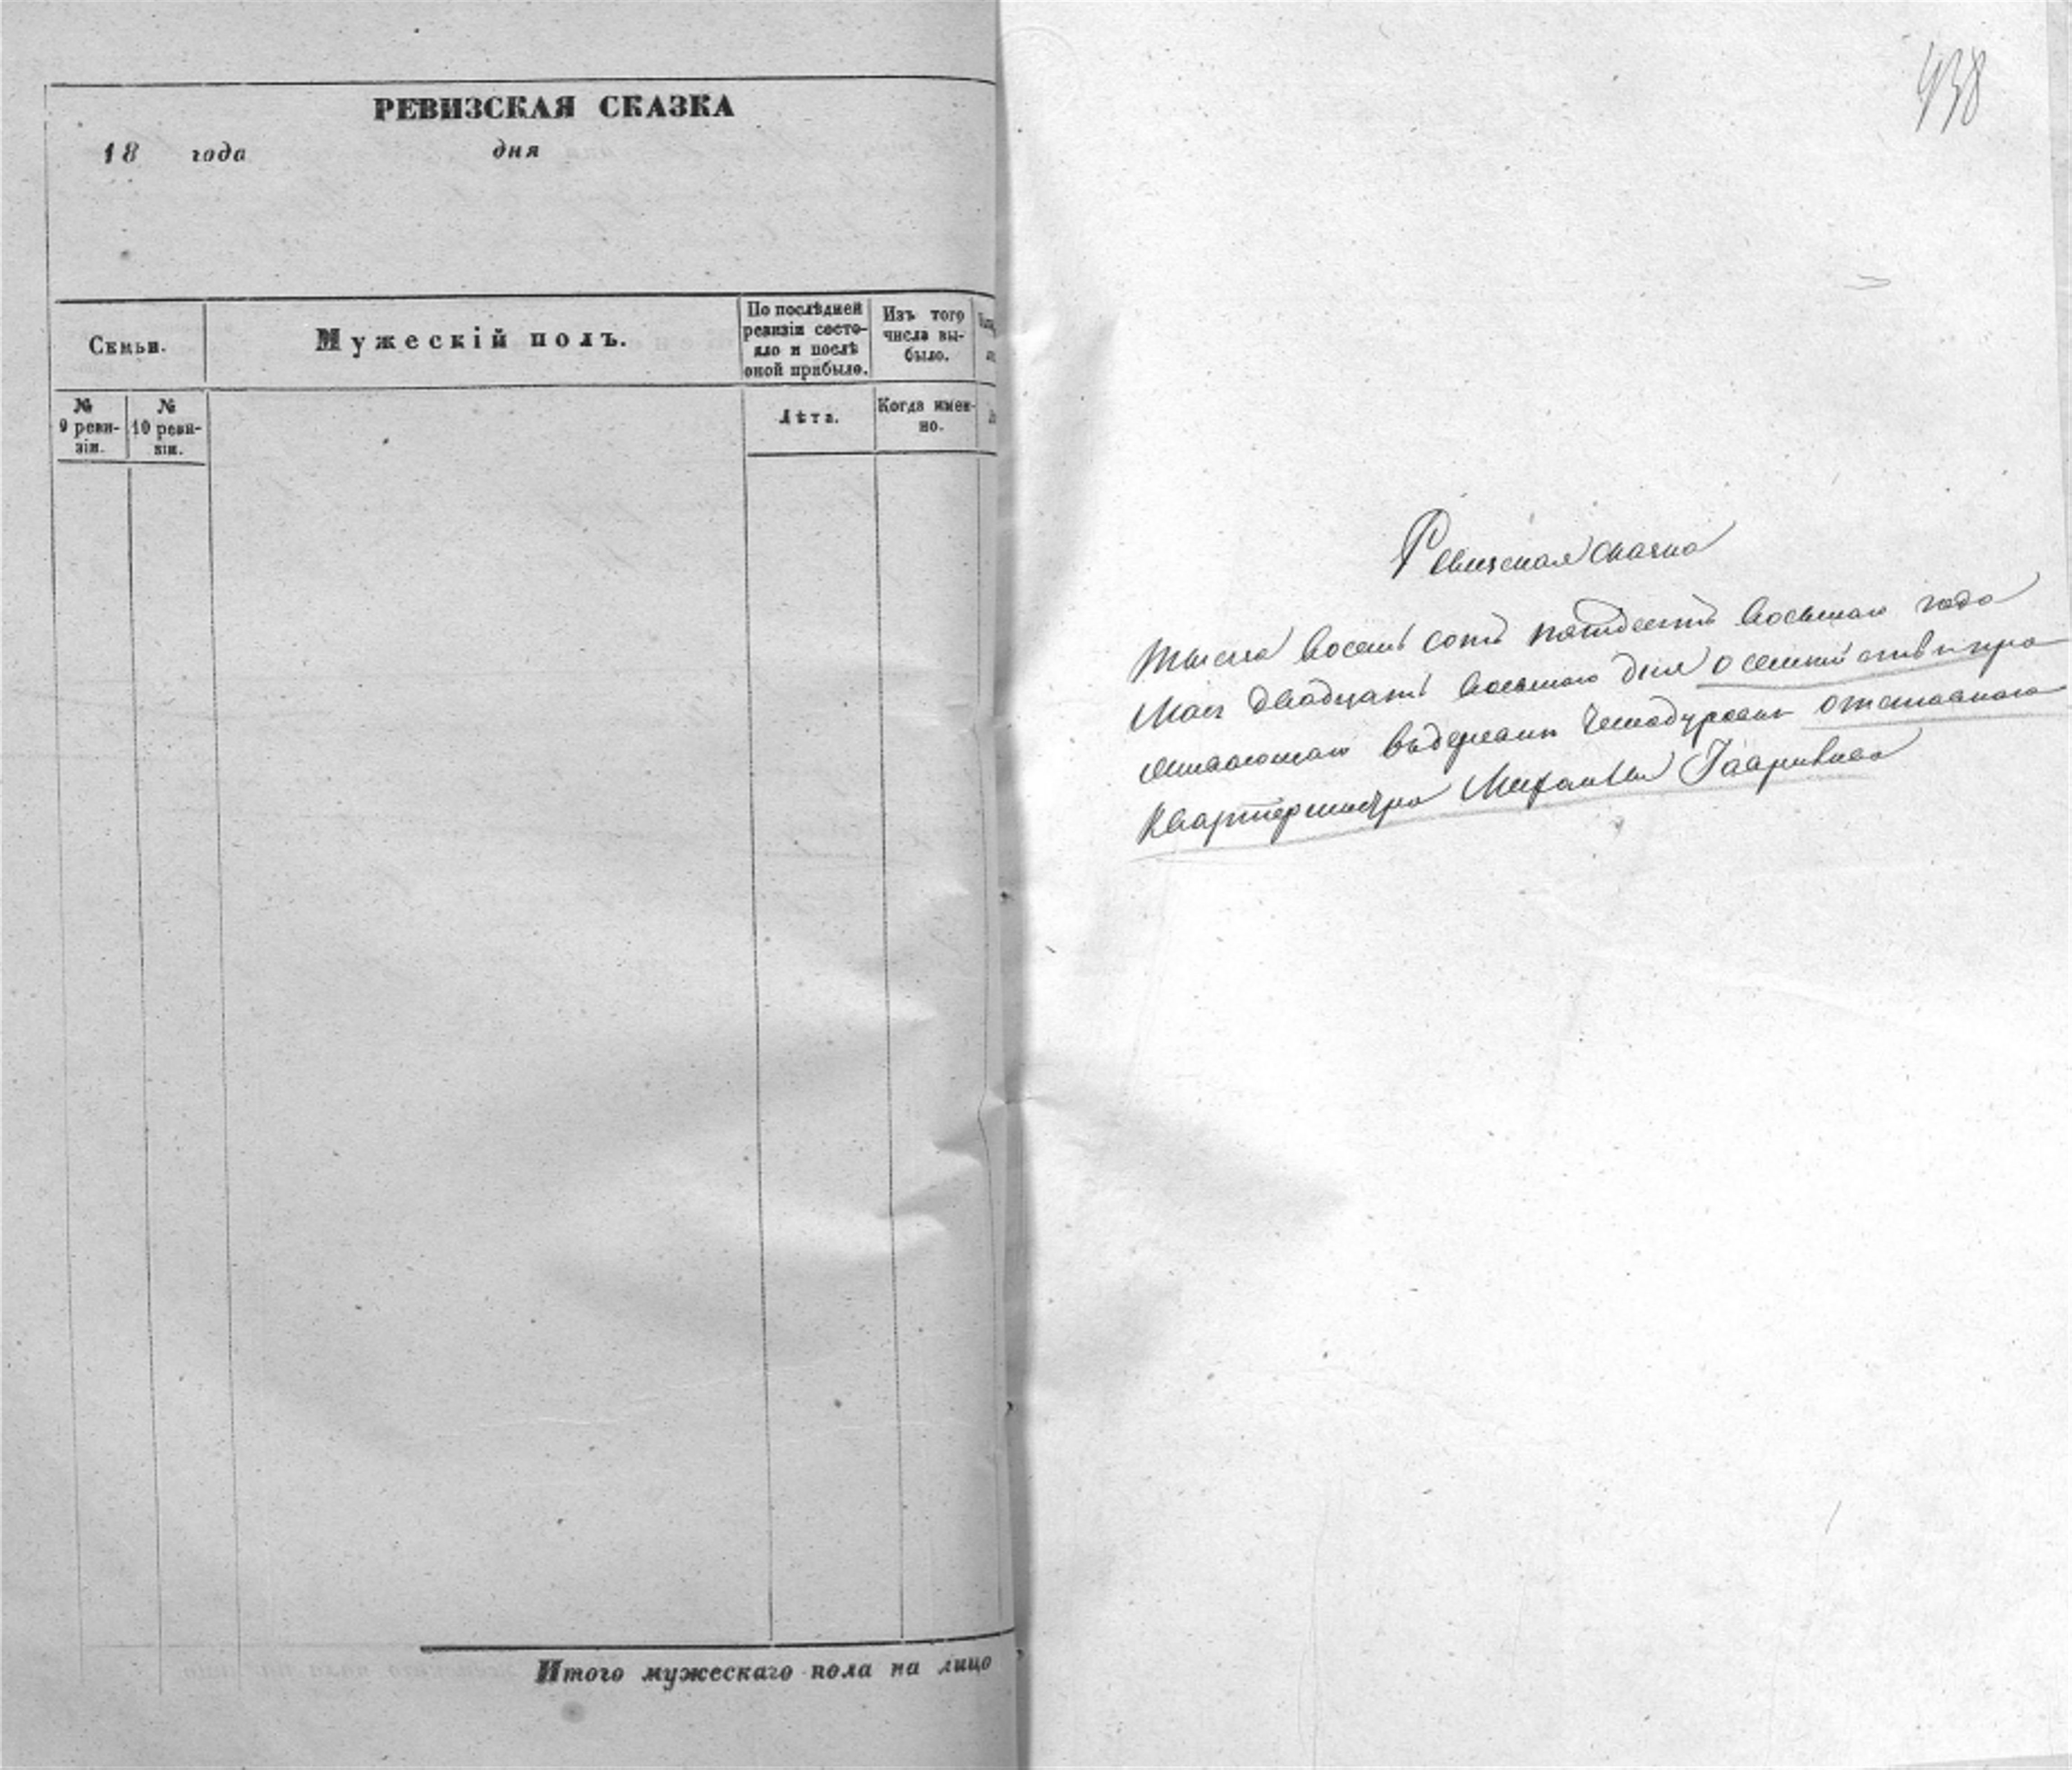 РЕВИЗСКАЯ СКАЗКА
18 года дня
Семьи.
Мужескій полъ.
По послѣдней ревизіи состояло и послѣ оной прибыло.
Изъ того числа выбыло.
№ 9 ревизіи.
№ 10 ревизіи.
Лѣта.
Когда именно.
Итого мужескаго пола на лицо
438
Ревизская сказка
Тысеча восемь сотъ пятдесятъ восьмаго года
Мая двадцать восьмаго дня о семействе пра
живающаго въ деревни Чемодуровки отставного
квартермистра Михаила Гаврилова